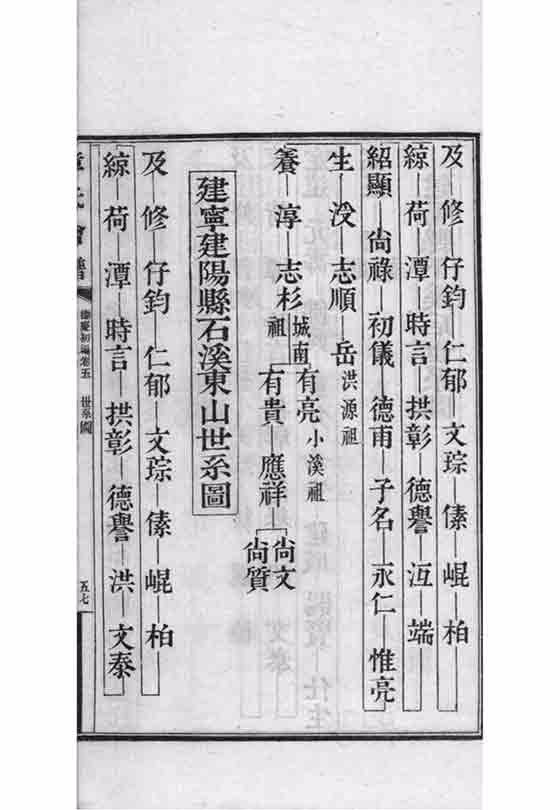 及 修 仔鈞 仁郁 文琮 傃 崐 柏
綡 荷 潭 時言 拱彰 德譽 沍 端
紹顯 尙祿 初儀 德甫 子名 永仁 惟亮
生 㳇 志順 岳 洪源祖
養 淳 志杉
城南祖
有亮 小溪祖
有貴 應祥
尙文
尙質
建寧建陽縣石溪東山世系圖
及 修 仔鈞 仁郁 文琮 傃 崐 柏
綡 荷 潭 時言 拱彰 德譽 洪 文泰
章氏會譜 德慶初編卷五 世系圖 五七